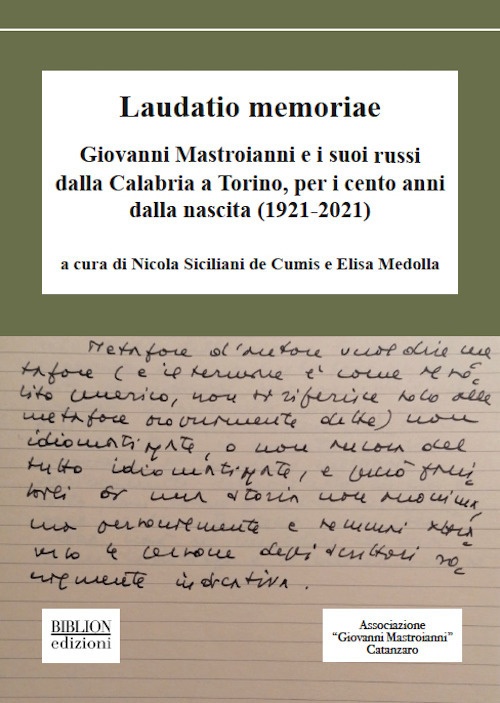 Laudatio memoriae
Giovanni Mastroianni e i suoi russi
dalla Calabria a Torino, per i cento anni
dalla nascita (1921-2021)
a cura di Nicola Siciliani de Cumis e Elisa Medolla
Metafore d'autore vuol dire me
tafore (e il termine è come
lito generico, non si riferisce solo alle
metafore propriamente dette) non
idiomatizzate, o non ancora del
tutto idiomatizzate, e perciò frui
bili in una storia non anonima,
ma personalmente e
di scrittori so
indicativa.
BIBLION
edizioni
Associazione
"Giovanni Mastroianni"
Catanzaro